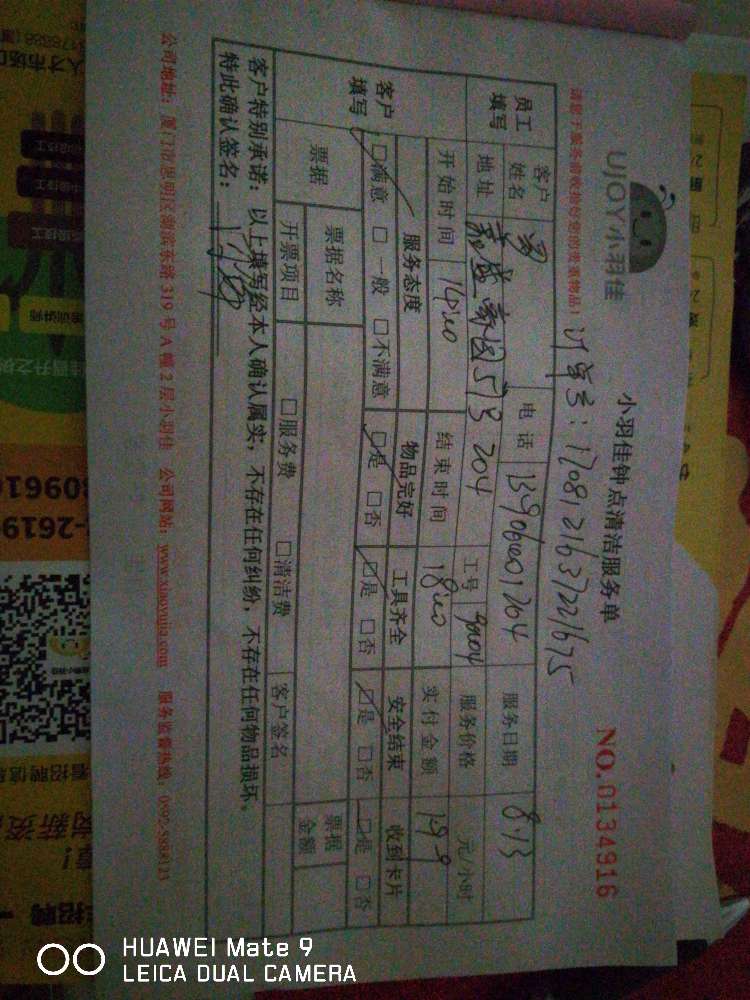 UJOY小羽佳
小羽佳钟点清洁服务单
NO.0134916
计单号：170812163721675
员工填写 客户姓名 电话 13906001204 服务日期 8.13
地址 嘉盛豪园573 204 工号 服务价格 元/小时
开始时间 14:00 结束时间 18:00 实付金额 149
客户填写 服务态度 物品完好 工具齐全 安全结束 收到卡片
□满意 □一般 □不满意 □是 □否 □是 □否 □是 □否 □是 □否
票据 票据名称 票据金额
开票项目 □服务费 □清洁费 客户签名
客户特别承诺：以上填写经本人确认属实，不存在任何纠纷，不存在任何物品损坏。
特此确认签名：
公司地址：厦门市思明区湖滨东路319号A幢2层小羽佳 公司网站：www.xiaoyujia.com 服务监督热线：0592-5888123
HUAWEI Mate 9
LEICA DUAL CAMERA